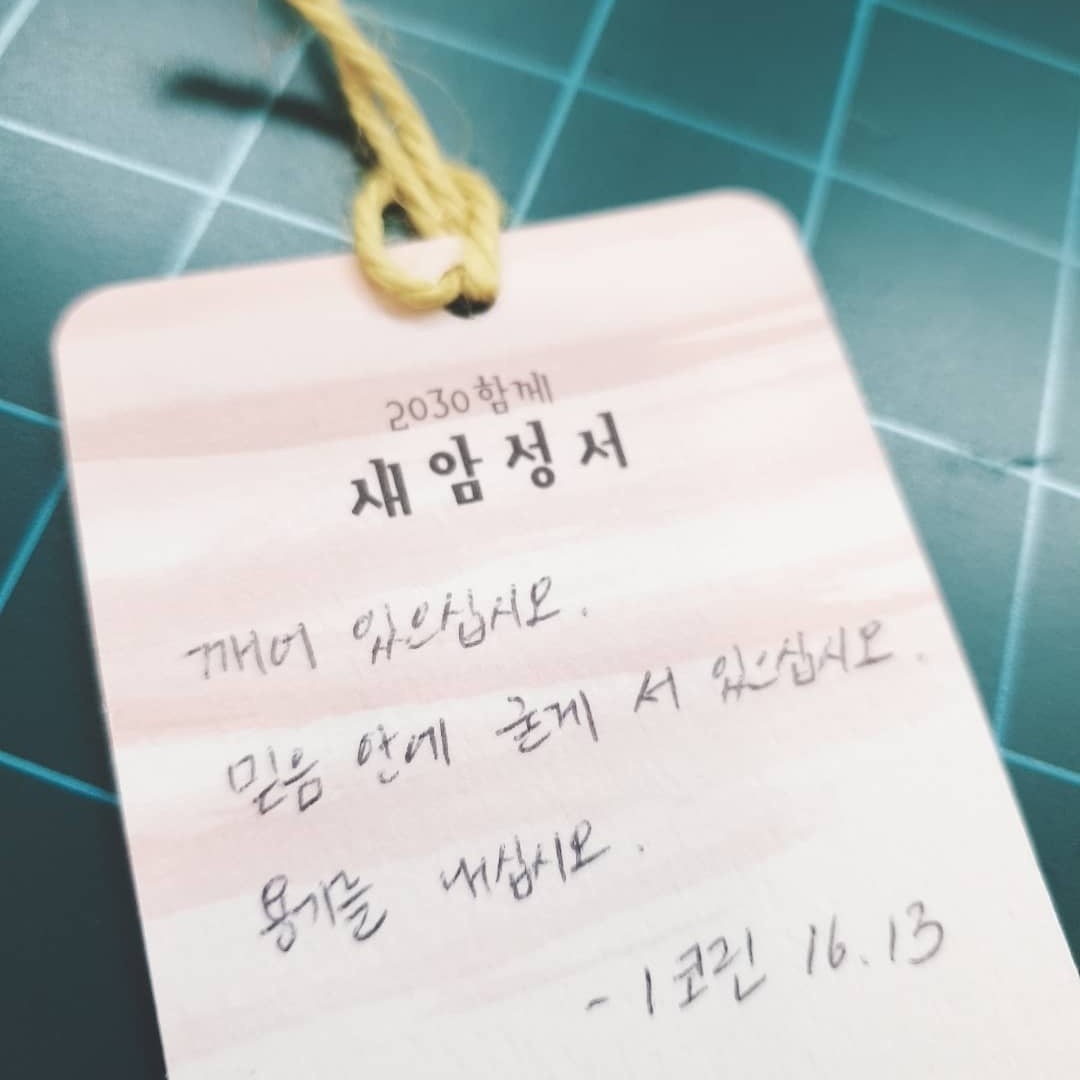 2030함께
새암성서
깨어 있으십시오.
믿음 안에 굳게 서 있으십시오.
용기를 내십시오.
- 1 코린 16.13